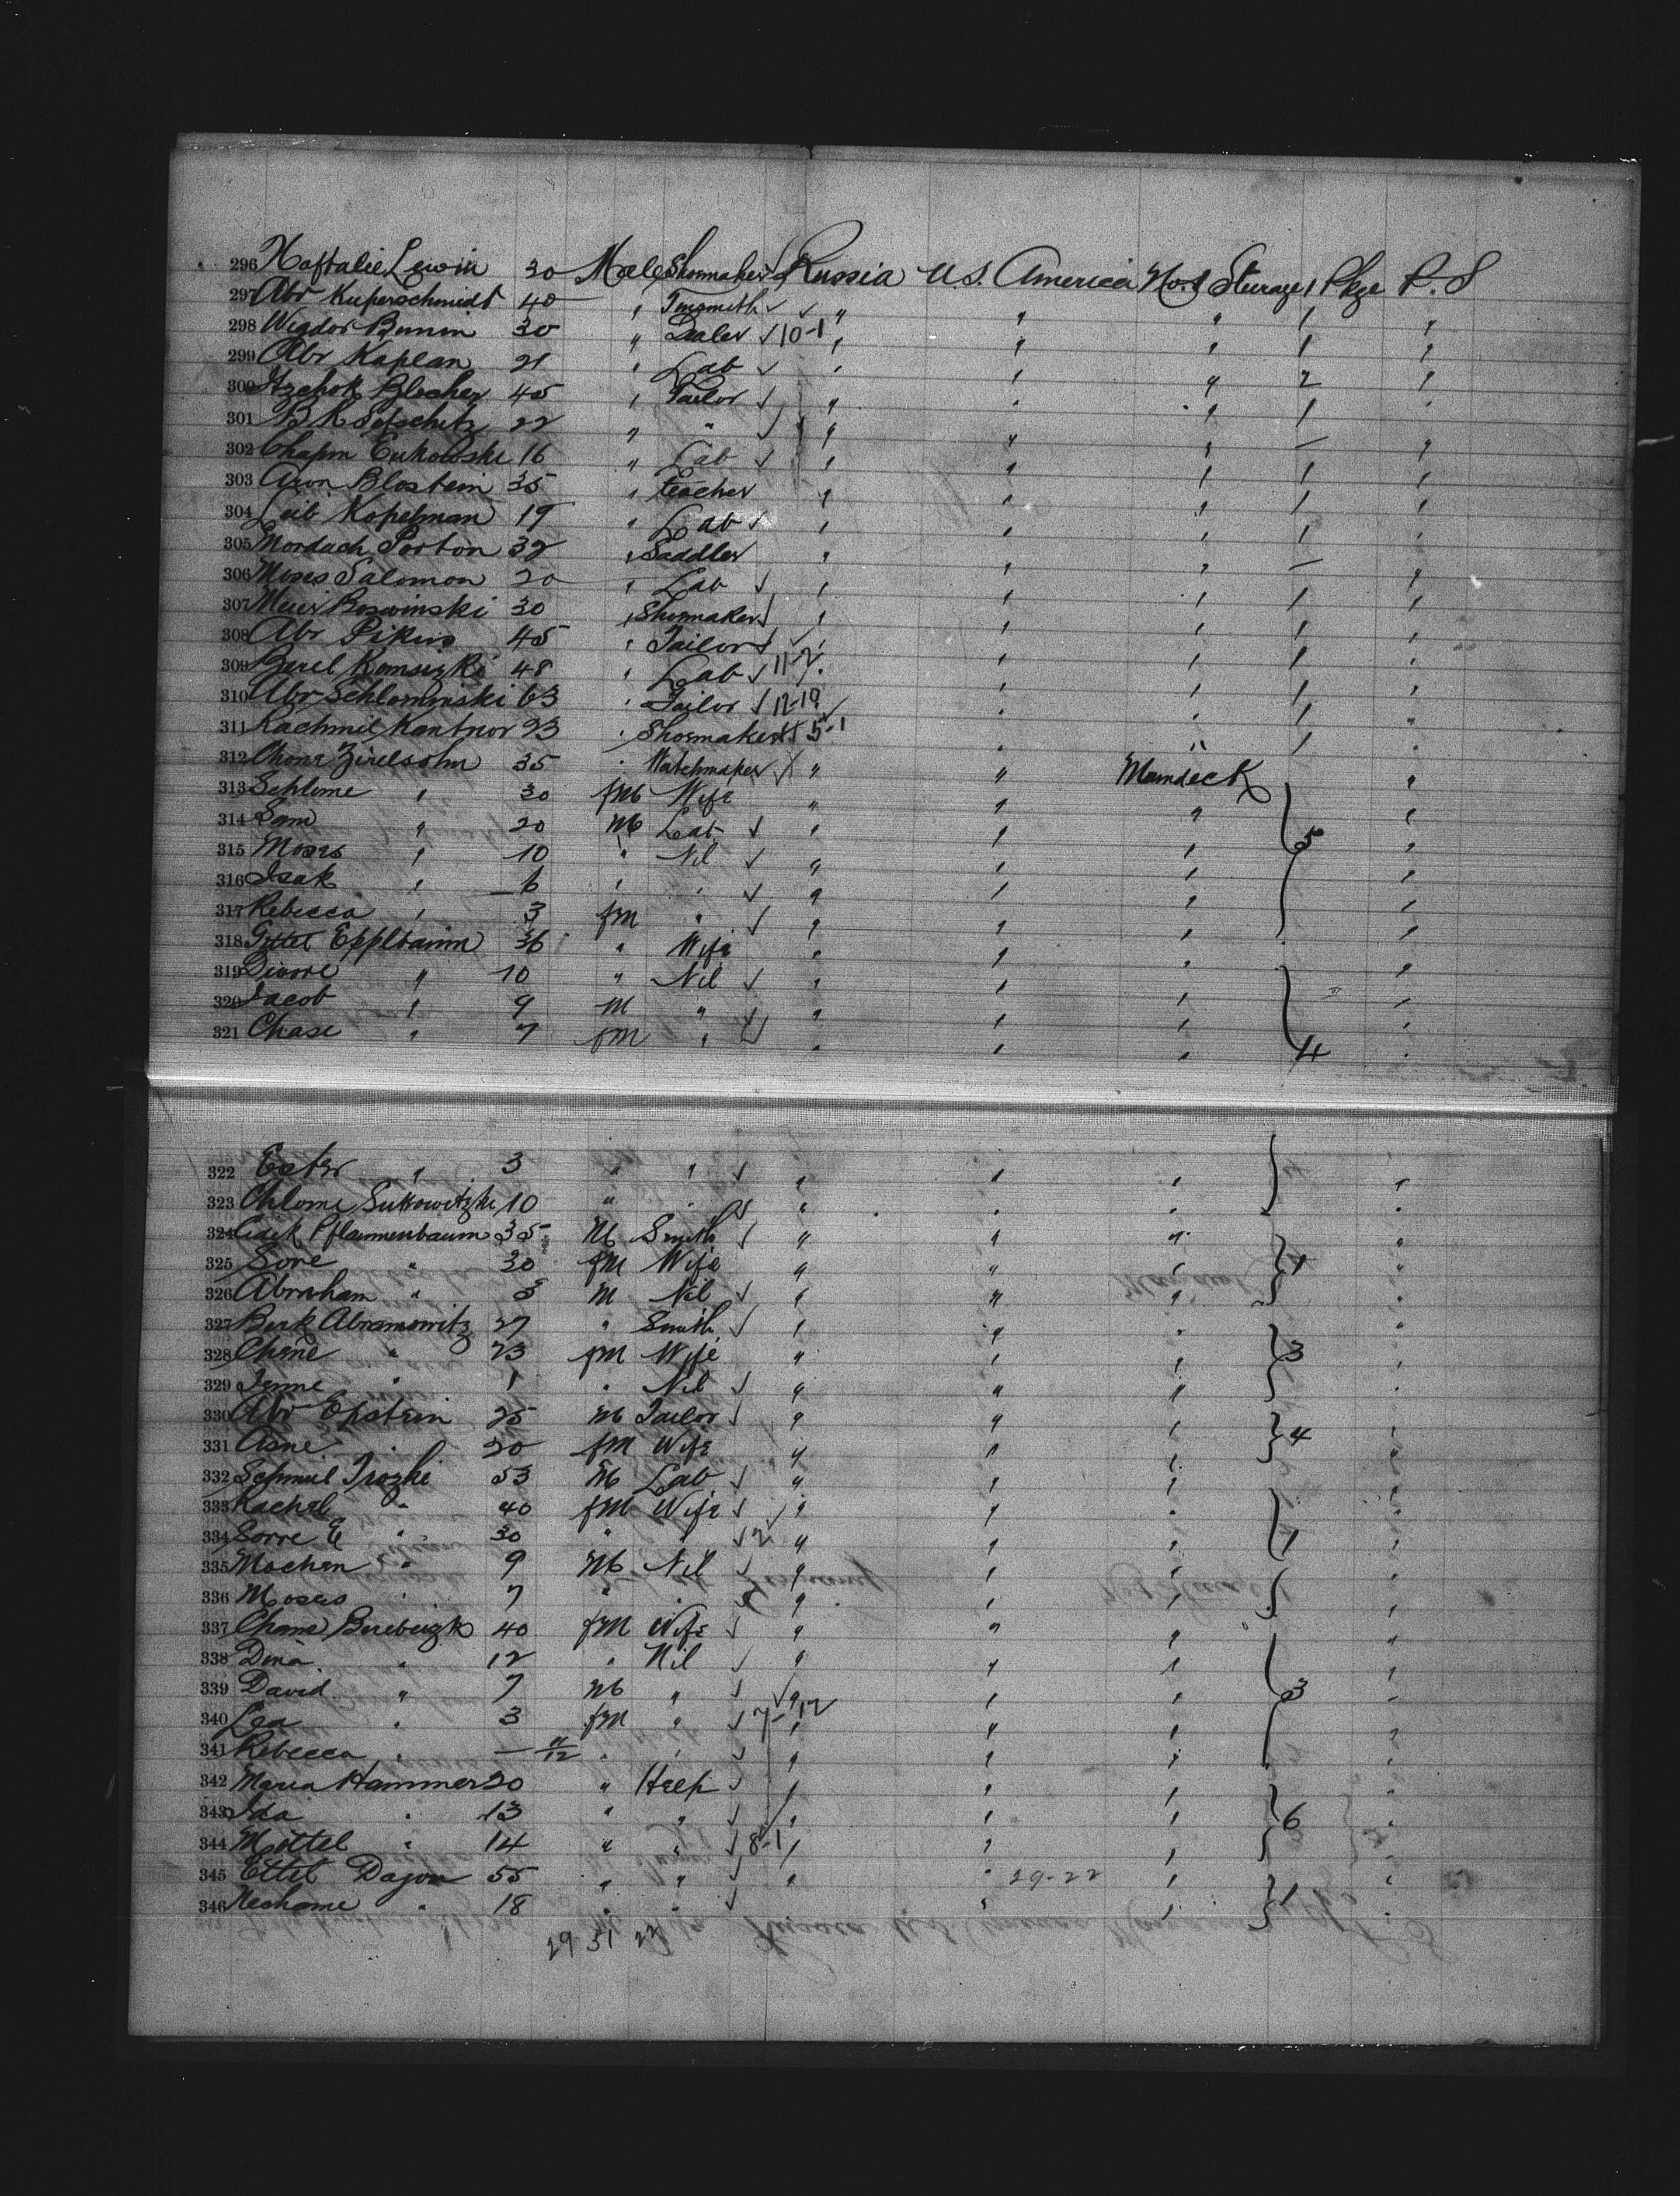 296 Naftalie Lewin 30 Male Shoemaker ✓ Russia U.S. America No.1 Sterage 1 Pkge P.S
297 Abr Kuperschmidt 40 " Tinsmith ✓ ✓ " " " 1 "
298 Wigdor Bunin 30 " Dealer ✓ 10-1 " " " 1 "
299 Abr Kaplan 21 " Lab ✓ " " " 2 "
300 Itzchok Blocher 45 " Tailor ✓ " " " 1 "
301 B K Sefschitz 22 " " ✓ " " " — "
302 Chapm Eukowske 16 " Lab ✓ " " " 1 "
303 Aron Blostein 35 " teacher " " " 1 "
304 Leib Kopelman 19 " Lab ✓ " " " 1 "
305 Mordach Porton 32 " Saddler " " " — "
306 Moses Salomon 20 " Lab ✓ " " " 1 "
307 Meier Boswinski 30 " Shoemaker ✓ " " " 1 "
308 Abr Pikus 45 " Tailor ✓ ✓ " " " 1 "
309 Berel Komsuzki 48 " Lab ✓ 11-7 " " " 1 "
310 Abr Schlominski 63 " Tailor ✓ 12-10 " " " 1 "
311 Rachmil Kantnor 23 " Shoemaker ✓ 5-1 " " " 1 "
312 Chone Zirelsohn 35 " Watchmaker ✓ " " Maindeck "
313 Schlome " 30 fM Wife " " " "
314 Sam " 20 M Lab ✓ " " " 5 "
315 Moses " 10 " Nil ✓ " " " "
316 Isak " 6 " " ✓ " " " "
317 Rebecca " 3 fM " ✓ " " " "
318 Gittel Epplbaum 36 " Wife " " " "
319 Divore " 10 " Nil ✓ " " " "
320 Jacob " 9 M " ✓ " " " "
321 Chase " 7 fM " ✓ " " " 4 "
322 Ester " 3 " " ✓ " " " "
323 Chlome Sutkowitzke 10 " " ✓ " " " "
324 Pflaumenbaum 35 M Smith ✓ " " " "
325 Sore " 30 fM Wife " " " 1 "
326 Abraham " 3 M Nil ✓ " " " "
327 Berk Abramowitz 27 " Smith ✓ " " " "
328 Chene " 23 fM Wife " " " 3 "
329 Jenne " 1 " Nil ✓ " " " "
330 Abr Epstein 25 M Tailor ✓ " " " "
331 Asne " 20 fM Wife " " " 4 "
332 Schmul Trozki 53 M Lab ✓ " " " "
333 Rachel " 40 fM Wife ✓ ✓ " " " "
334 Sorre E " 30 " " ✓ 2 " " " 1 "
335 Mochen " 9 M Nil ✓ " " " "
336 Moses " 7 " " ✓ " " " "
337 Chane 40 fM Wife ✓ " " " "
338 Dina " 12 " Nil ✓ " " " "
339 David " 7 M " ✓ ✓ " " " 3 "
340 Lea " 3 fM " ✓ 7-12 " " " "
341 Rebecca " — 11/12 " " ✓ " " " "
342 Maria Hammer 20 " Help ✓ " " " "
343 Ida " 13 " " ✓ ✓ " " " 6 "
344 Mottel " 14 " " ✓ 8-1 " " " "
345 Ettel Dajon 55 " " ✓ " " 29-22 " "
346 Nechame " 18 " " ✓ " " 1 "
29 51 22